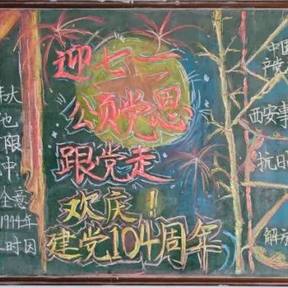 迎七一
颂党恩
跟党走
欢庆！
建党104周年
大
也
限
中
全意
1944年
时因
中国
产党
西安事
抗日
解放